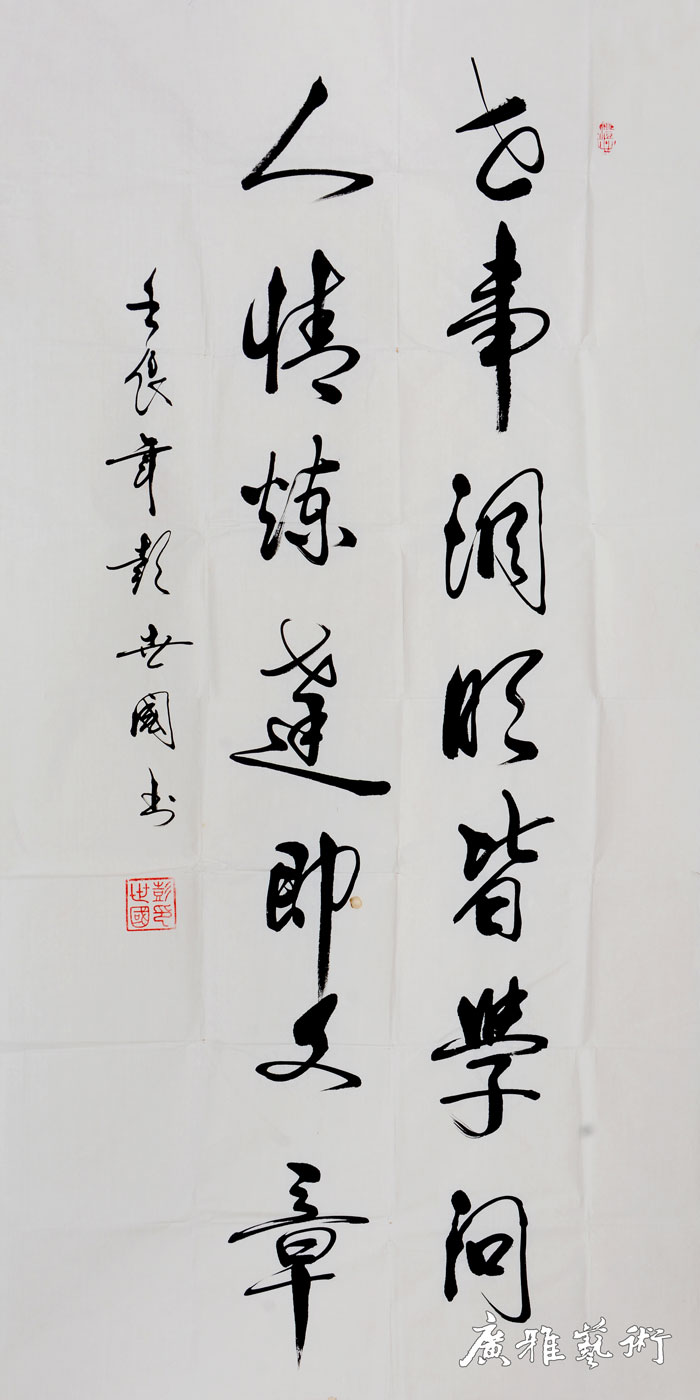 世事洞明皆學问
人情炼達即文章
壬辰年彭世國书
彭印世國
廣雅藝術